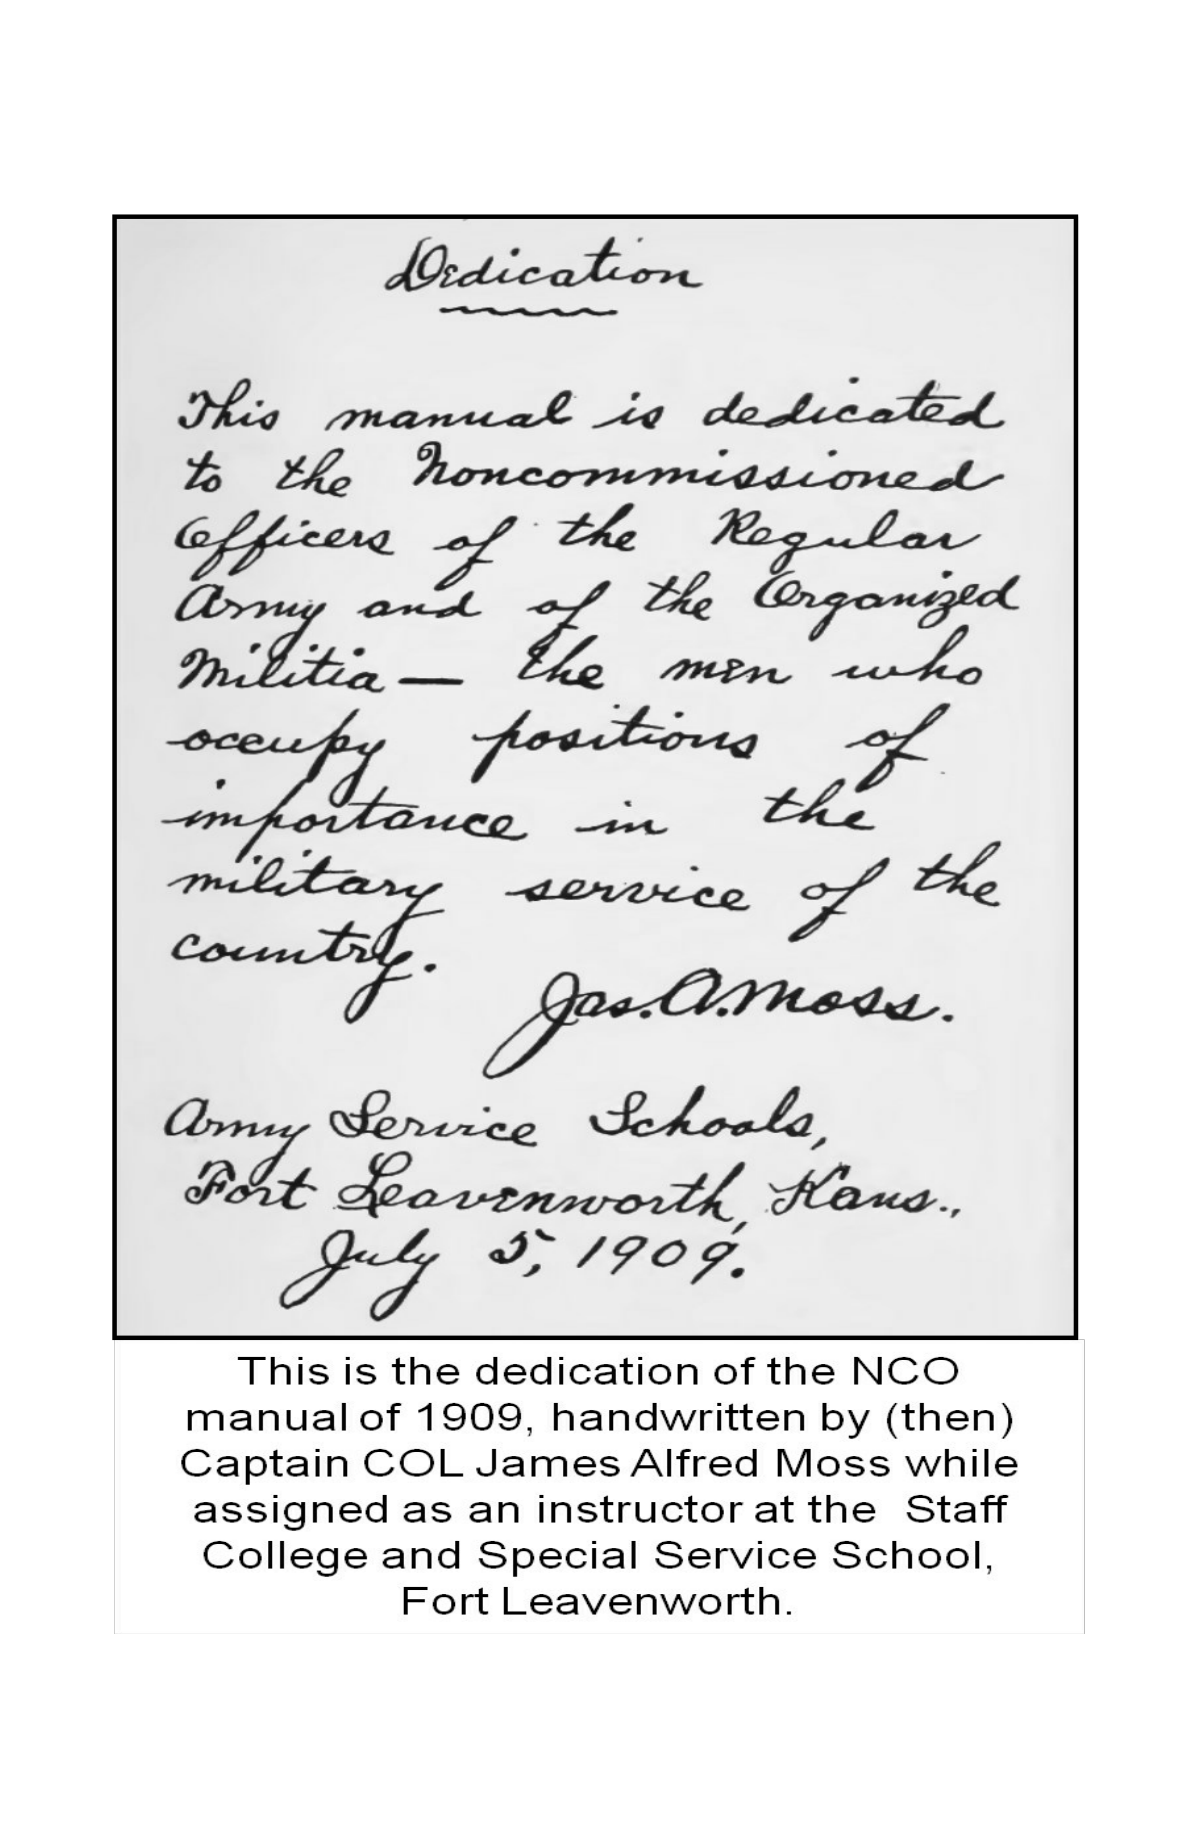 Dedication
This manual is dedicated
to the Noncommissioned
Officers of the Regular
Army and of the Organized
Militia — the men who
occupy positions of
importance in the
military service of the
country.
Jas. A. Moss.
Army Service Schools,
Fort Leavenworth, Kans.,
July 5, 1909.
This is the dedication of the NCO
manual of 1909, handwritten by (then)
Captain COL James Alfred Moss while
assigned as an instructor at the Staff
College and Special Service School,
Fort Leavenworth.